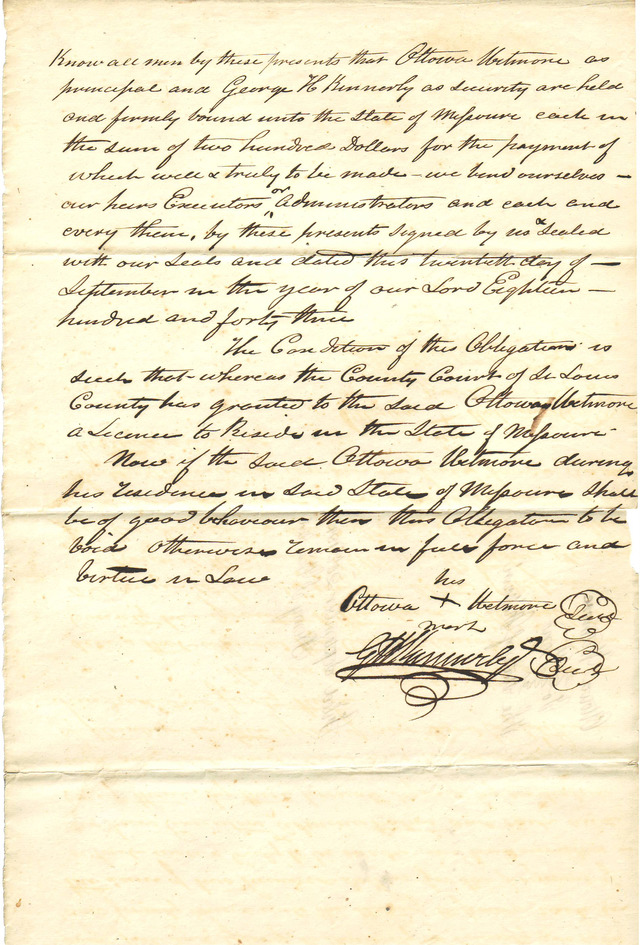 Know all men by these presents that Ottowa Wetmore as
principal and George H Kennerly as security are held
and firmly bound unto the State of Missouri each in
the sum of two hundred Dollars for the payment of
which well & truly to be made – we bind ourselves –
our heirs Executors or Administrators and each and
every them, by these presents signed by us & Sealed
with our Seals and dated this twentieth day of –
September in the year of our Lord Eighteen –
hundred and forty three
The Condition of this Obligation is
such that whereas the County Court of St Louis
County has granted to the said Ottowa Wetmore
a Licence to Reside in the State of Missouri
Now if the said Ottowa Wetmore during
his residence in said State of Missouri shall
be of good behaviour then this Obligation to be
Void otherwise remain in full force and
Virtue in Law
his
Ottowa X Wetmore Seal
mark
G H Kennerly Seal